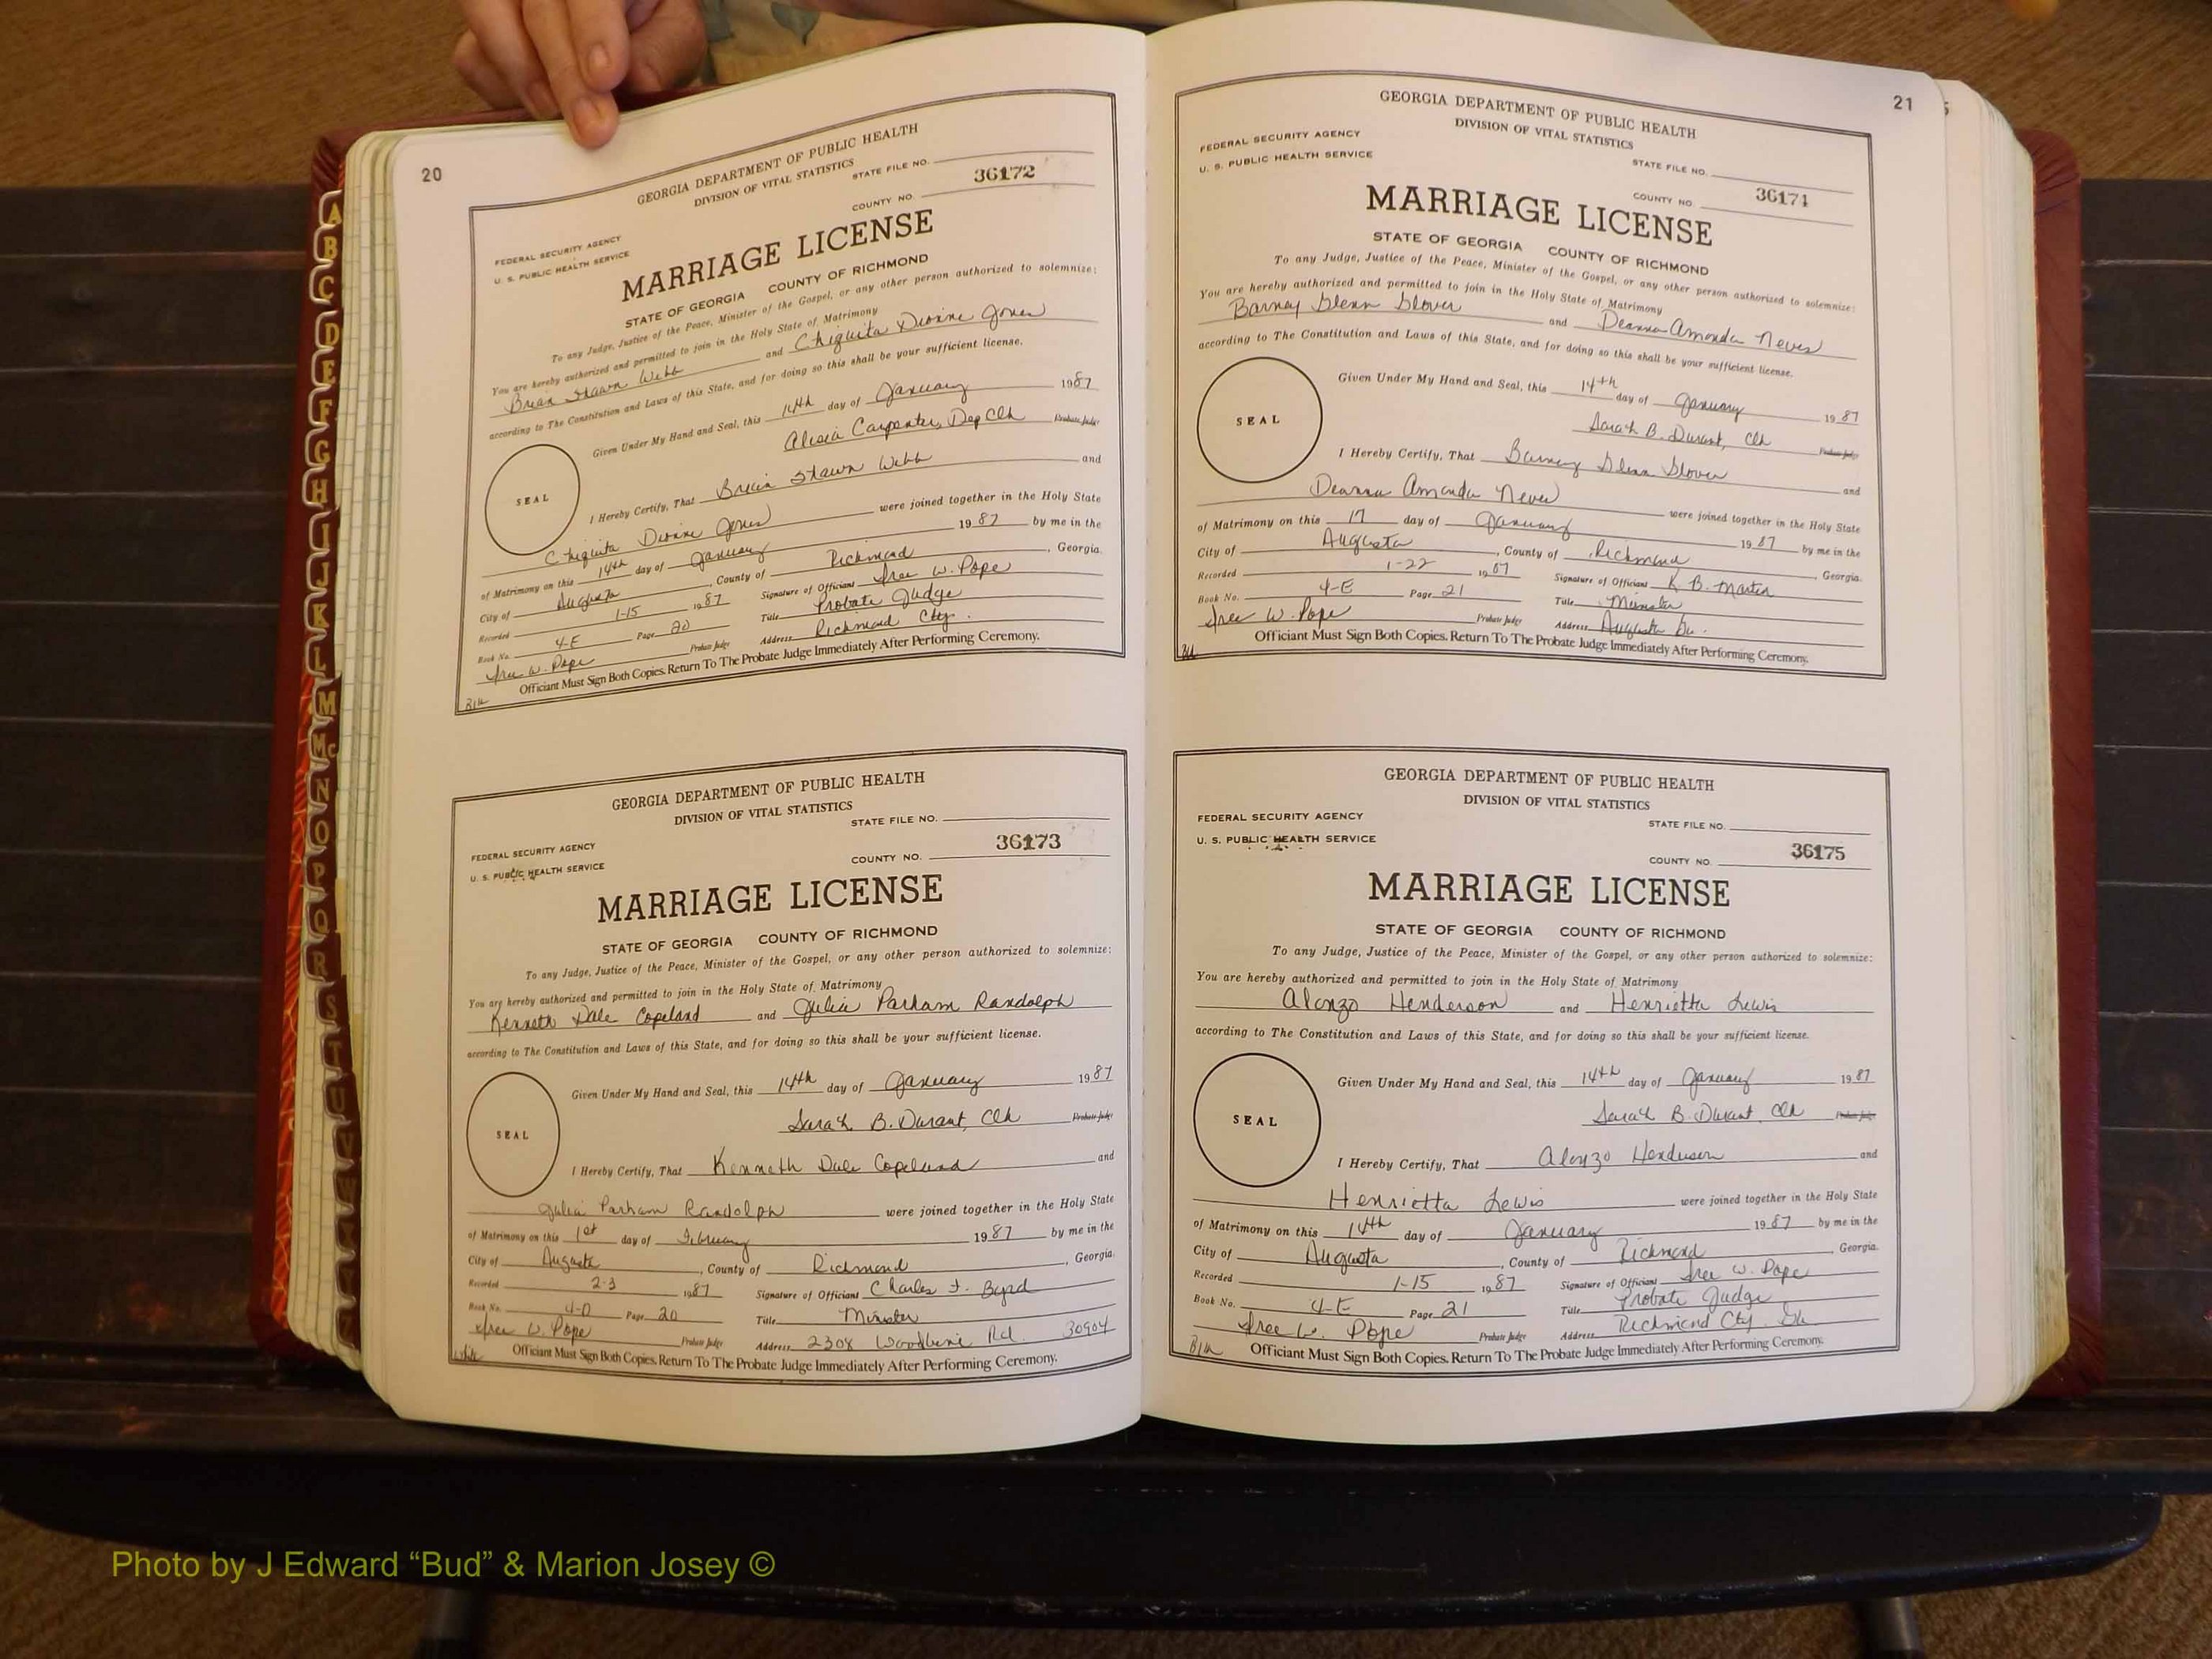 20
GEORGIA DEPARTMENT OF PUBLIC HEALTH
DIVISION OF VITAL STATISTICS
STATE FILE NO.
FEDERAL SECURITY AGENCY
U. S. PUBLIC HEALTH SERVICE
COUNTY NO. 36172
MARRIAGE LICENSE
STATE OF GEORGIA COUNTY OF RICHMOND
To any Judge, Justice of the Peace, Minister of the Gospel, or any other person authorized to solemnize:
You are hereby authorized and permitted to join in the Holy State of Matrimony
Brian Shawn Webb and Chiquita Dionne Jones
according to The Constitution and Laws of this State, and for doing so this shall be your sufficient license.
Given Under My Hand and Seal, this 14th day of January 1987
Alisia Carpenter, Dep Clk Probate Judge
SEAL
I Hereby Certify, That Brian Shawn Webb and
Chiquita Dionne Jones were joined together in the Holy State
of Matrimony on this 14th day of January 1987 by me in the
City of Augusta, County of Richmond, Georgia.
Recorded 1-15 1987 Signature of Officiant W. Pope
Book No. 4-E Page 20 Title Probate Judge
W. Pope Probate Judge Address Richmond Cty.
Officiant Must Sign Both Copies. Return To The Probate Judge Immediately After Performing Ceremony.
GEORGIA DEPARTMENT OF PUBLIC HEALTH
DIVISION OF VITAL STATISTICS
STATE FILE NO.
FEDERAL SECURITY AGENCY
U. S. PUBLIC HEALTH SERVICE
COUNTY NO. 36173
MARRIAGE LICENSE
STATE OF GEORGIA COUNTY OF RICHMOND
To any Judge, Justice of the Peace, Minister of the Gospel, or any other person authorized to solemnize:
You are hereby authorized and permitted to join in the Holy State of Matrimony
Kenneth Dale Copeland and Julia Parham Randolph
according to The Constitution and Laws of this State, and for doing so this shall be your sufficient license.
Given Under My Hand and Seal, this 14th day of January 1987
Sarah B. Durant, Clk Probate Judge
SEAL
I Hereby Certify, That Kenneth Dale Copeland and
Julia Parham Randolph were joined together in the Holy State
of Matrimony on this 1st day of February 1987 by me in the
City of Augusta, County of Richmond, Georgia.
Recorded 2-3 1987 Signature of Officiant Charles F. Byrd
Book No. 4-D Page 20 Title Minister
W. Pope Probate Judge Address 2308 Woodbine Rd. 30904
Officiant Must Sign Both Copies. Return To The Probate Judge Immediately After Performing Ceremony.
21
GEORGIA DEPARTMENT OF PUBLIC HEALTH
DIVISION OF VITAL STATISTICS
FEDERAL SECURITY AGENCY
U. S. PUBLIC HEALTH SERVICE
STATE FILE NO.
COUNTY NO. 36174
MARRIAGE LICENSE
STATE OF GEORGIA COUNTY OF RICHMOND
To any Judge, Justice of the Peace, Minister of the Gospel, or any other person authorized to solemnize:
You are hereby authorized and permitted to join in the Holy State of Matrimony
Barney Glenn Glover and Deanna Amanda Never
according to The Constitution and Laws of this State, and for doing so this shall be your sufficient license.
Given Under My Hand and Seal, this 14th day of January 1987
Sarah B. Durant, Clk Probate Judge
SEAL
I Hereby Certify, That Barney Glenn Glover and
Deanna Amanda Never were joined together in the Holy State
of Matrimony on this 17 day of January 1987 by me in the
City of Augusta, County of Richmond, Georgia.
Recorded 1-22 1987 Signature of Officiant K. B. Martin
Book No. 4-E Page 21 Title Minister
W. Pope Probate Judge Address Augusta Ga.
Officiant Must Sign Both Copies. Return To The Probate Judge Immediately After Performing Ceremony.
GEORGIA DEPARTMENT OF PUBLIC HEALTH
DIVISION OF VITAL STATISTICS
FEDERAL SECURITY AGENCY
STATE FILE NO.
U. S. PUBLIC HEALTH SERVICE
COUNTY NO. 36175
MARRIAGE LICENSE
STATE OF GEORGIA COUNTY OF RICHMOND
To any Judge, Justice of the Peace, Minister of the Gospel, or any other person authorized to solemnize:
You are hereby authorized and permitted to join in the Holy State of Matrimony
Alonzo Henderson and Henrietta Lewis
according to The Constitution and Laws of this State, and for doing so this shall be your sufficient license.
Given Under My Hand and Seal, this 14th day of January 1987
Sarah B. Durant, Clk Probate Judge
SEAL
I Hereby Certify, That Alonzo Henderson and
Henrietta Lewis were joined together in the Holy State
of Matrimony on this 14th day of January 1987 by me in the
City of Augusta, County of Richmond Georgia.
Recorded 1-15 1987 Signature of Officiant W. Pope
Book No. 4-E Page 21 Title Probate Judge
W. Pope Probate Judge Address Richmond Cty. Ga
Officiant Must Sign Both Copies. Return To The Probate Judge Immediately After Performing Ceremony.
A
B
C
D
E
F
G
H
I
J
K
L
M
Mc
N
O
P
Q
R
S
T
U
V
Photo by J Edward “Bud” & Marion Josey ©